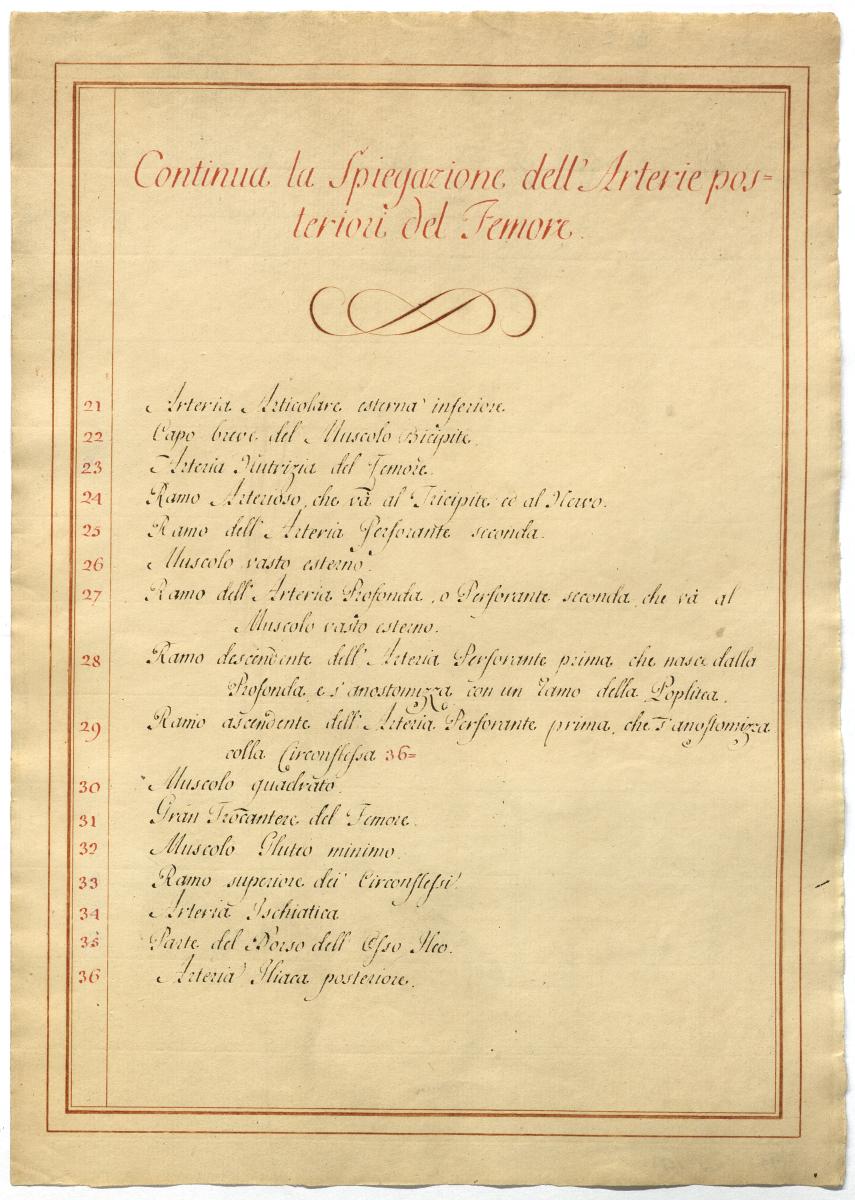 Continua la Spiegazione dell'Arterie pos=
teriori del Femore.
21 Arteria Articolare esterna inferiore
22 Capo breve del Muscolo Bicipite.
23 Arteria Nutrizia del Femore.
24 Ramo Arterioso, che và al Tricipite ed al Nervo.
25 Ramo dell'Arteria Perforante seconda.
26 Muscolo vasto esterno.
27 Ramo dell'Arteria Profonda, o Perforante seconda, che và al
Muscolo vasto esterno.
28 Ramo descendente dell'Arteria Perforante prima, che nasce dalla
Profonda, e s'anostomizza con un ramo della Poplitea.
29 Ramo ascendente dell'Arteria Perforante prima, che s'anostomizza
colla Circonflessa 36=
30 Muscolo quadrato.
31 Gran Trocantere del Femore.
32 Muscolo Gluteo minimo.
33 Ramo superiore dei Circonflessi.
34 Arteria Ischiatica
35 Parte del Dorso dell'Osso Ileo.
36 Arteria Iliaca posteriore.